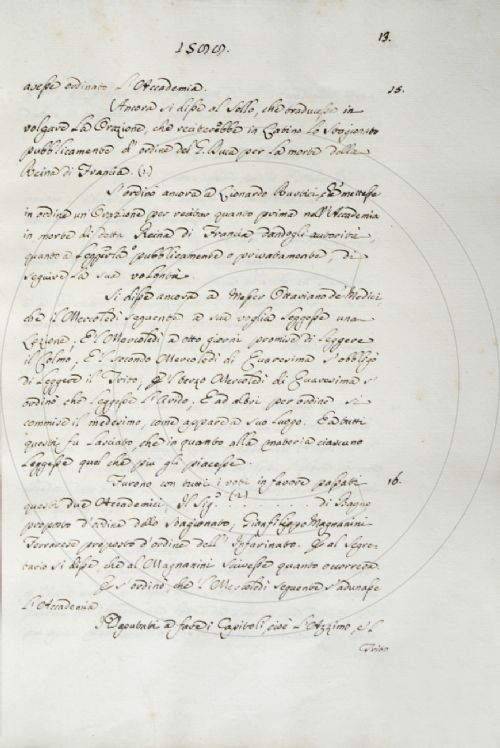 13.
1589.
avesse ordinato l'Accademia.
15.
Ancora si disse al Sollo, che traducesse in
volgare la Orazione, che reciterebbe in Latino lo Stagionato
pubblicamente d'ordine del G. Duca per la morte della
Reina di Francia. (1)
S'ordinò ancora a Lionardo che mettesse
in ordine un'Orazione per recitar quanto prima nell'Accademia
in morte di detta Reina di Francia, dandogli autorità,
quanto a leggerla o pubblicamente o privatamente, di
seguire la sua volontà.
Si disse ancora a Messer Ottaviano de' Medici,
che il Mercoledì seguente a sua voglia leggesse una
Lezione. E il Mercoledì a otto giorni promise di leggere
il Colmo. E il secondo Mercoledì di Quaresima s'obbligò
di leggere il Trito, e 'l terzo Mercoledì di Quaresima s'
ordinò che leggesse l'Arido, E ad altri per ordine si
commise il medesimo, come appare a suo luogo. E a tutti
questi fu lasciato, che in quanto alla materia ciascuno
leggesse quel che più gli piacesse.
16.
Furono con tutti i voti in favore passati
questi due Accademici, Il Sig.r (2) . . . di Bagno
proposto d'ordine dello Stagionato, Gianfilippo Magnanini
Ferrarese proposto d'ordine dell'Infarinato. E al Segre-
tario si disse, che al Magnanini scrivesse quanto occorreva.
E s'ordinò, che 'l Mercoledì seguente s'adunasse
l'Accademia.
Deputati a fare i Capitoli, cioè l'Azzimo, e 'l
Trito